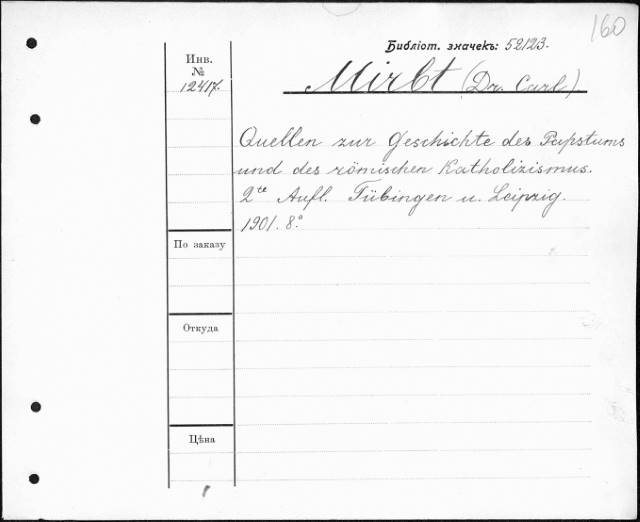 160
Библіот. значекъ: 52123.
Инв.
№
12417.
Mirbt (Dr. Carl)
Quellen zur Geschichte des Papstums
und des römischen Katholizismus.
2te Aufl. Tübingen u. Leipzig.
1901. 8º
По заказу
Откуда
Цѣна